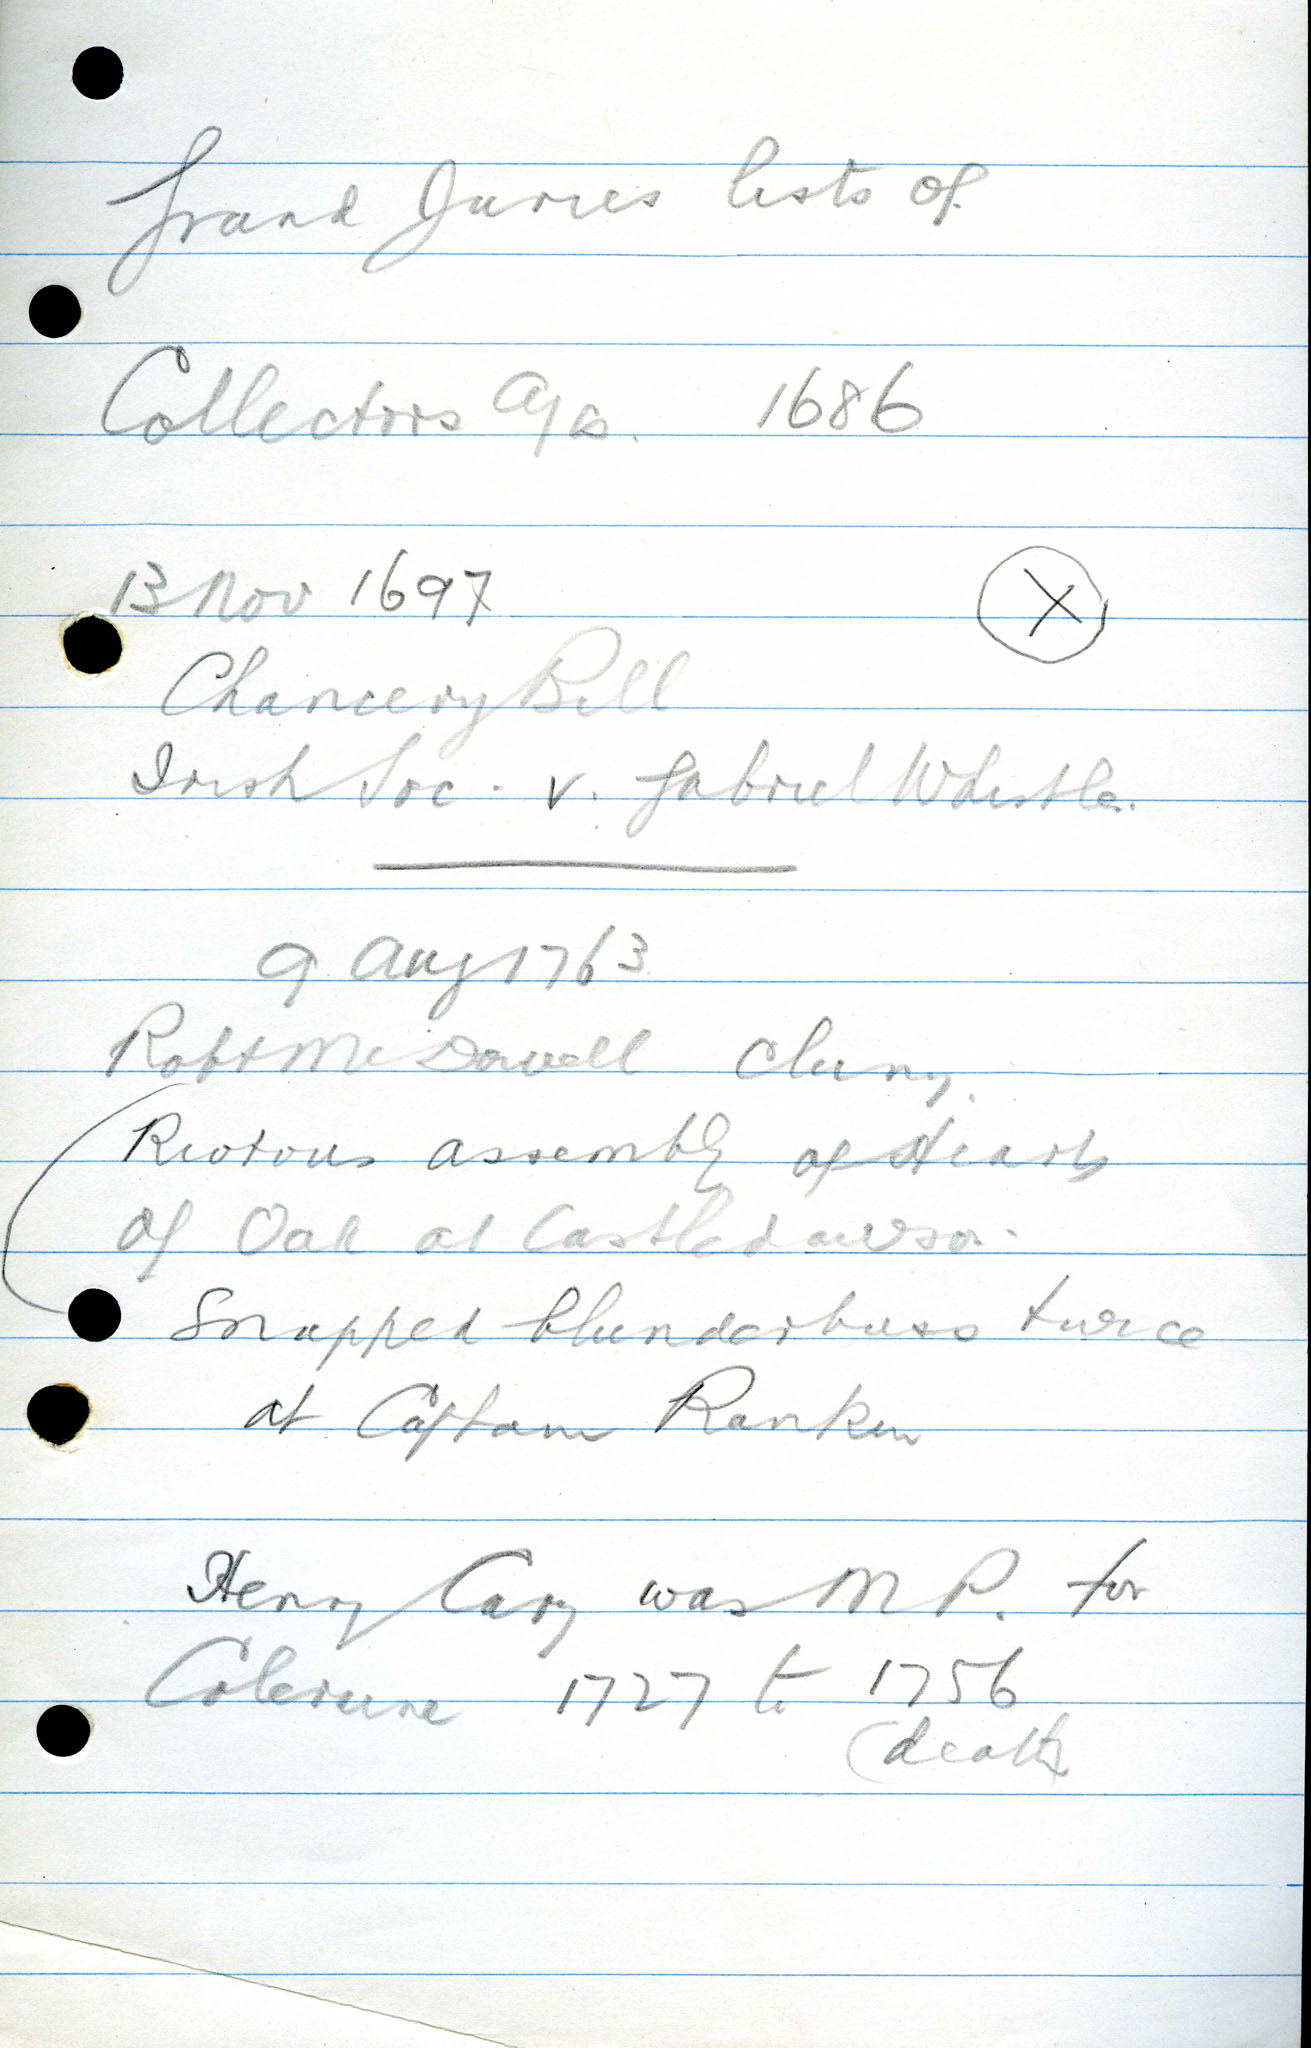 Grand Juries lists of
Collectors 1686
13 Nov 1697
X
Chancery Bill
Irish Soc. v. Gabriel Whistler.
9 Aug 1763
Robt McDowell Cluny.
Riotous assembly of Hearts
of Oak at Castledawson.
Snapped blunderbuss twice
at Captain Rankin
Henry Cary was M P. for
Coleraine 1727 to 1756
(death